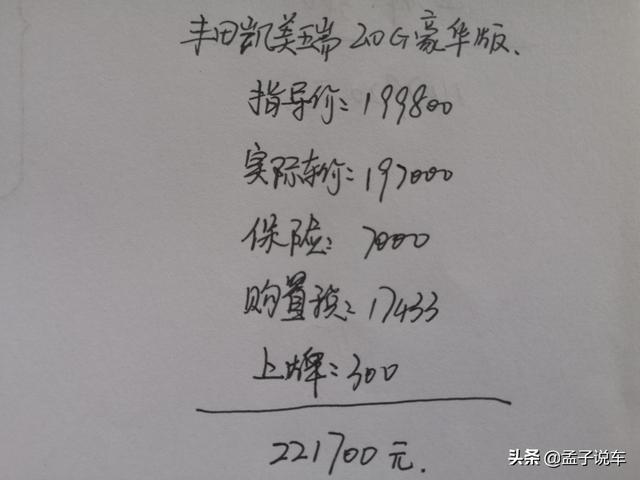 丰田凯美瑞 2.0G豪华版.
指导价: 199800
实际车价: 197000
保险: 7000
购置税: 17433
上牌: 300
221700元.
头条 @孟子说车